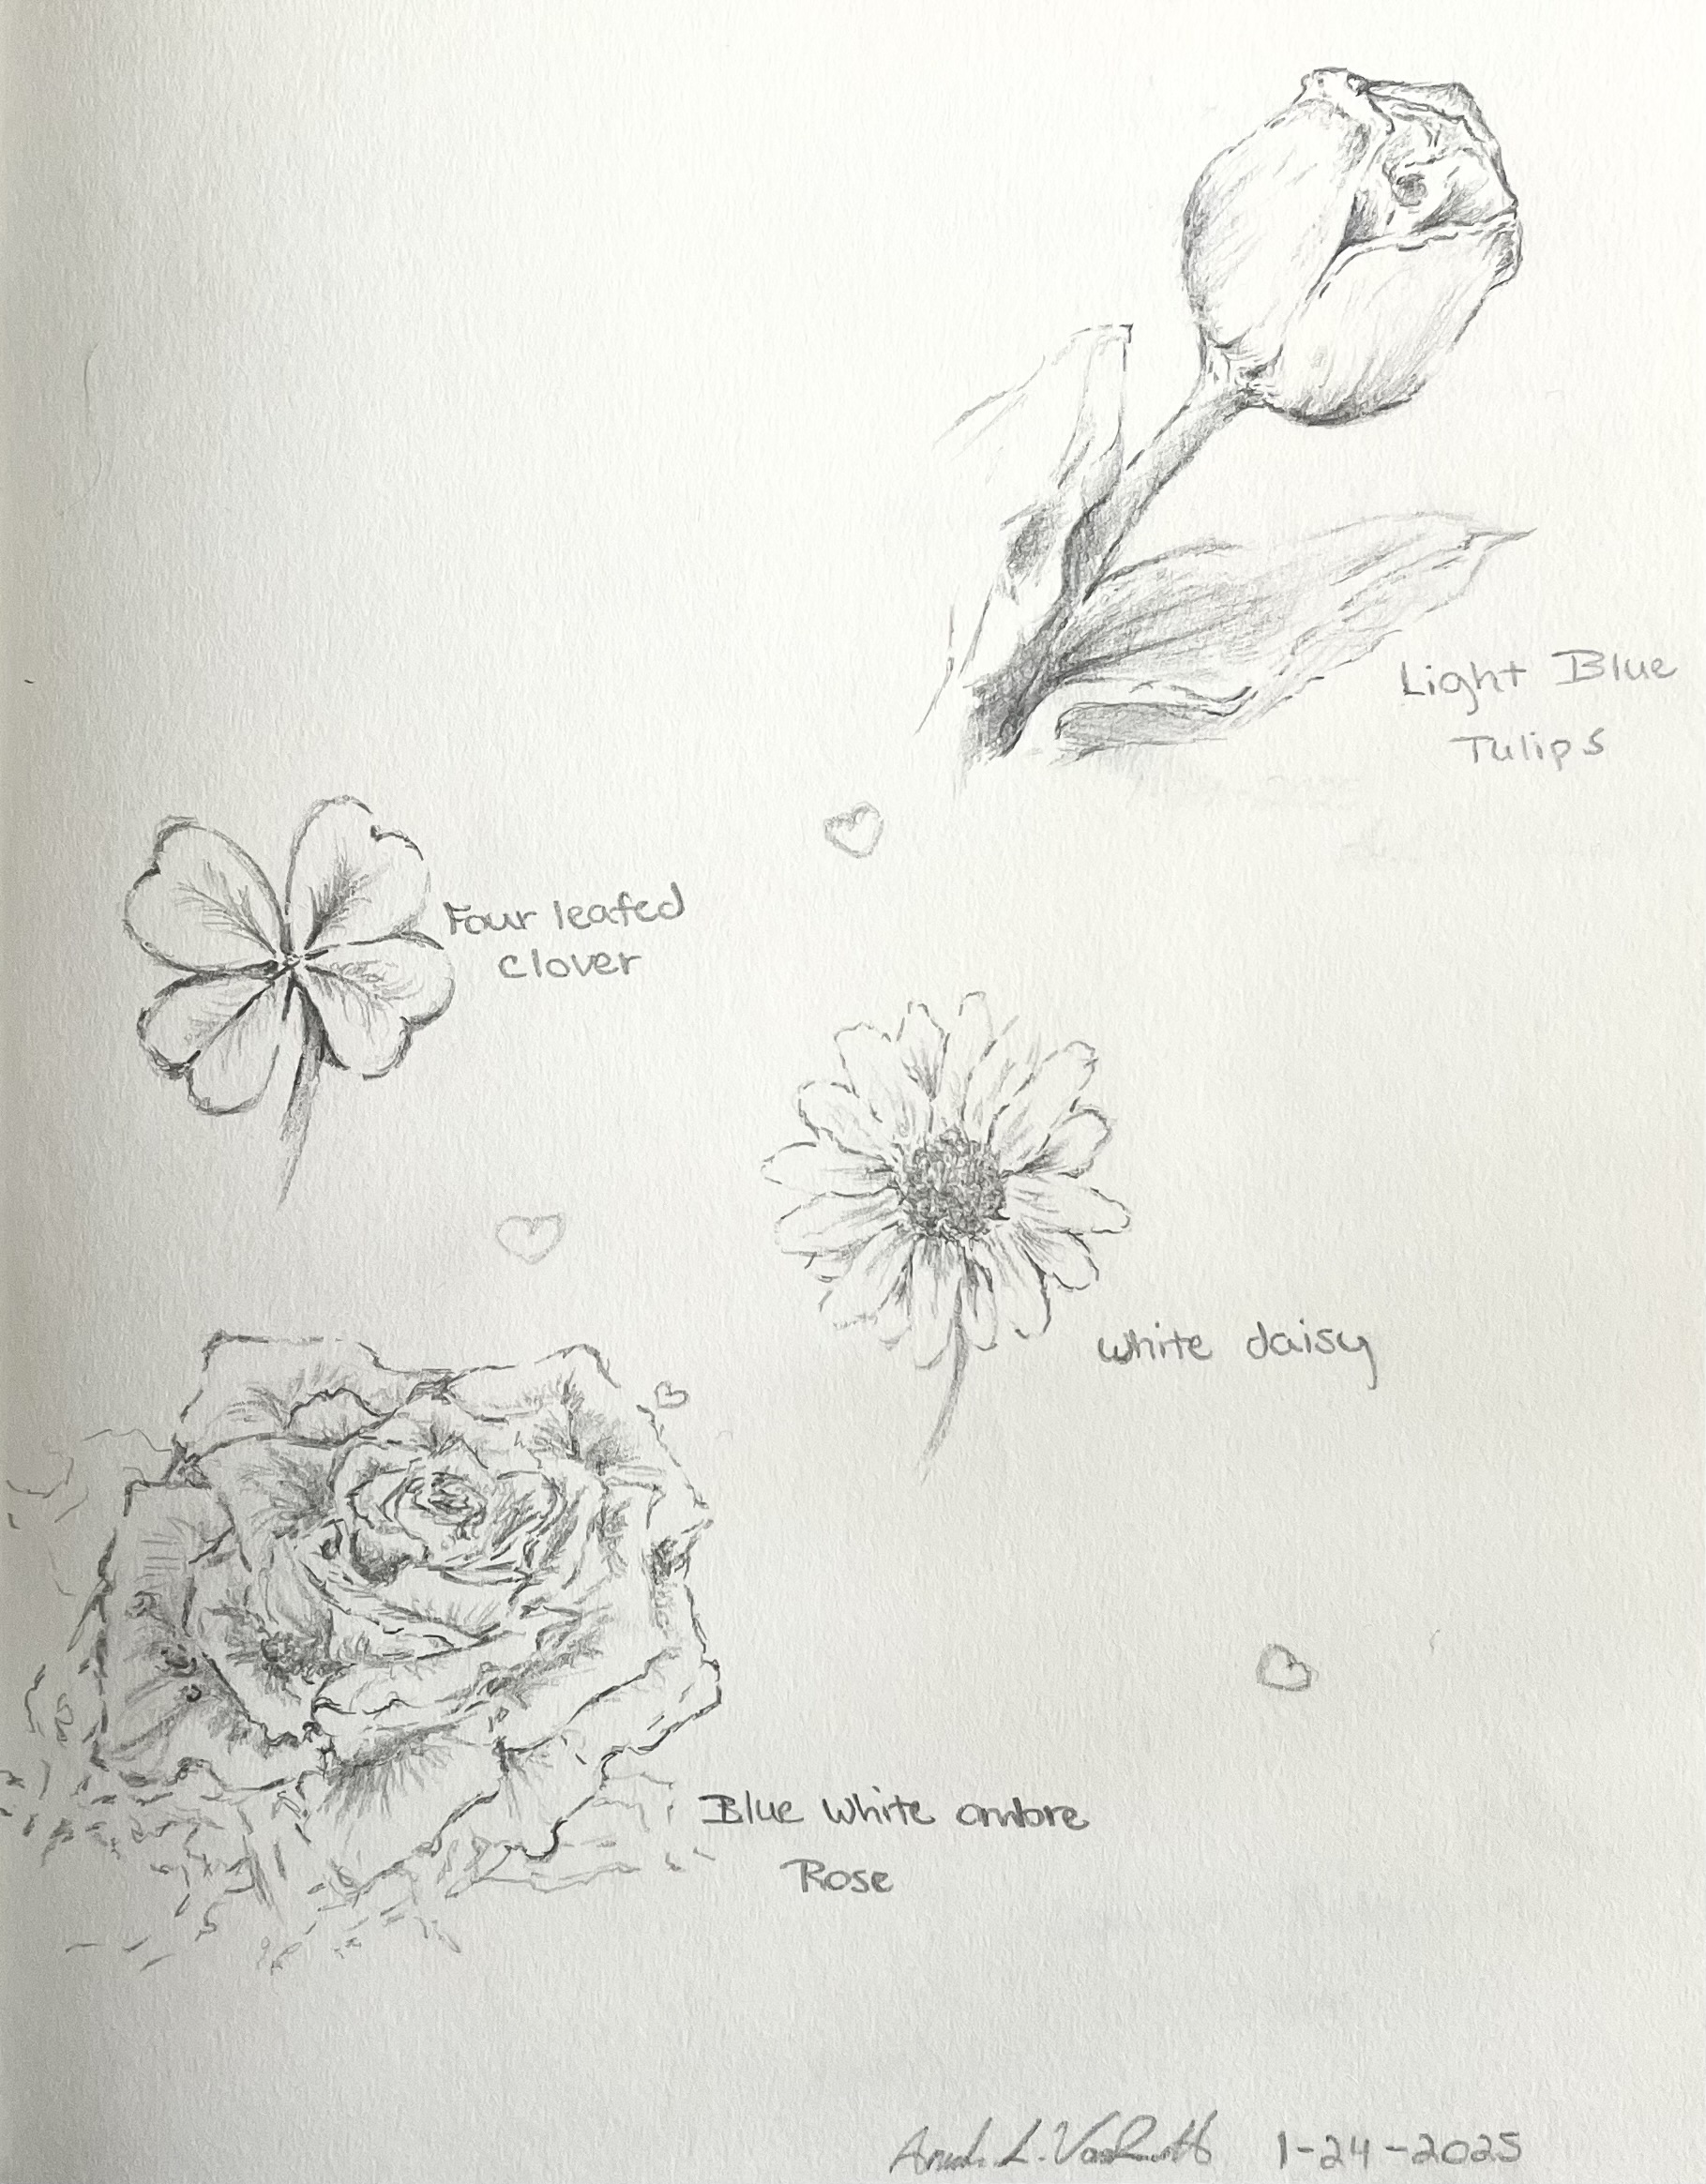 Light Blue
Tulips
Four leafed
clover
white daisy
Blue white ombre
Rose
L.
1-24-2025